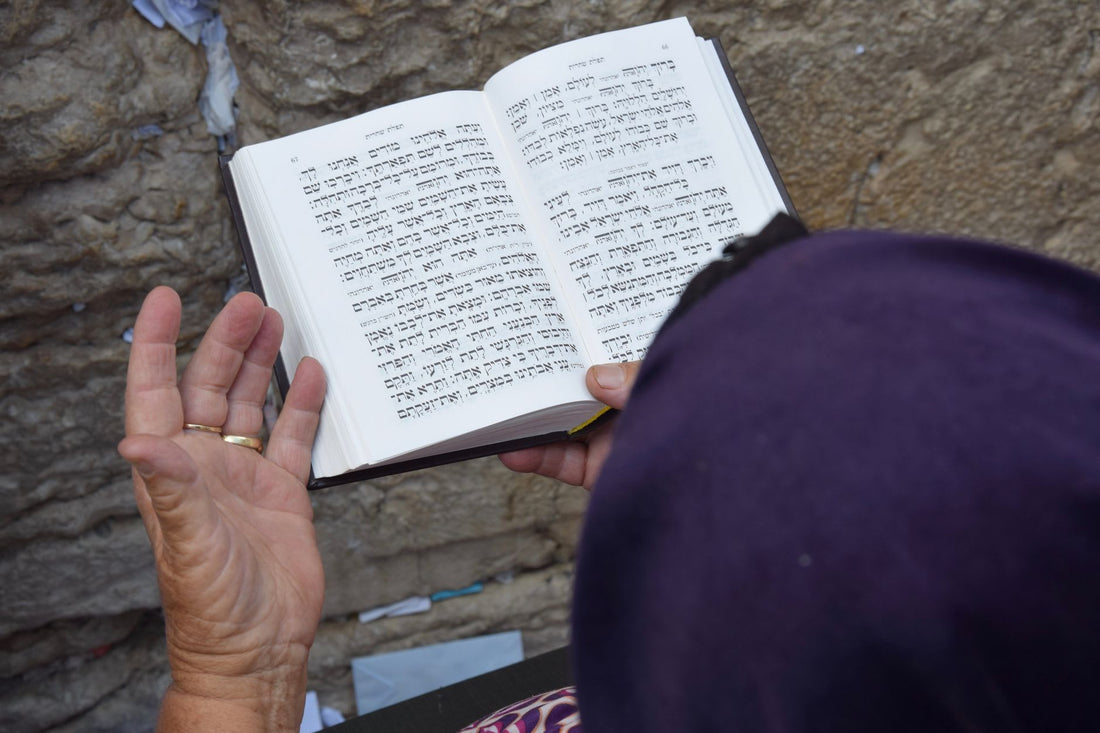 66
תפלת שחרית
בָּרוּךְ יְהֹוָה לְעוֹלָם. אָמֵן | וְאָמֵן:
בָּרוּךְ יְהֹוָה מִצִּיּוֹן. שֹׁכֵן
יְרוּשָׁלַיִם הַלְלוּיָהּ: בָּרוּךְ | יְהֹוָה
אֱלֹהִים אֱלֹהֵי יִשְׂרָאֵל. עֹשֵׂה נִפְלָאוֹת לְבַדּוֹ:
וּבָרוּךְ שֵׁם כְּבוֹדוֹ לְעוֹלָם. וְיִמָּלֵא כְבוֹדוֹ
אֶת־כָּל־הָאָרֶץ. אָמֵן | וְאָמֵן:
וַיְבָרֶךְ דָּוִיד אֶת־יְהֹוָה לְעֵינֵי
כָּל־הַקָּהָל וַיֹּאמֶר דָּוִיד בָּרוּךְ
אַתָּה יְהֹוָה אֱלֹהֵי יִשְׂרָאֵל אָבִינוּ
מֵעוֹלָם וְעַד־עוֹלָם: לְךָ יְהֹוָה
הַגְּדֻלָּה וְהַגְּבוּרָה וְהַתִּפְאֶרֶת וְהַנֵּצַח
בַּשָּׁמַיִם וּבָאָרֶץ
מִלְּפָנֶיךָ וְאַתָּה
67
תפלת שחרית
וְעַתָּה אֱלֹהֵינוּ מוֹדִים אֲנַחְנוּ לָךְ
וּמְהַלְלִים לְשֵׁם תִּפְאַרְתֶּךָ: וִיבָרְכוּ שֵׁם
כְּבוֹדֶךָ. וּמְרוֹמַם עַל־כָּל־בְּרָכָה וּתְהִלָּה:
אַתָּה־הוּא יְהֹוָה לְבַדֶּךָ אַתָּה
עָשִׂיתָ אֶת־הַשָּׁמַיִם שְׁמֵי הַשָּׁמַיִם וְכָל־
צְבָאָם הָאָרֶץ וְכָל־אֲשֶׁר עָלֶיהָ
הַיַּמִּים וְכָל־אֲשֶׁר בָּהֶם וְאַתָּה מְחַיֶּה
אֶת־כֻּלָּם וּצְבָא הַשָּׁמַיִם לְךָ מִשְׁתַּחֲוִים:
אַתָּה הוּא יְהֹוָה
הָאֱלֹהִים אֲשֶׁר בָּחַרְתָּ בְּאַבְרָם
וְהוֹצֵאתוֹ מֵאוּר כַּשְׂדִּים וְשַׂמְתָּ
שְּׁמוֹ אַבְרָהָם: וּמָצָאתָ אֶת־לְבָבוֹ נֶאֱמָן
לְפָנֶיךָ וְכָרוֹת עִמּוֹ הַבְּרִית לָתֵת אֶת־
אֶרֶץ הַכְּנַעֲנִי הַחִתִּי הָאֱמֹרִי וְהַפְּרִזִּי
וְהַיְבוּסִי וְהַגִּרְגָּשִׁי לָתֵת לְזַרְעוֹ. וַתָּקֶם
אֶת־דְּבָרֶיךָ כִּי צַדִּיק אָתָּה: וַתֵּרֶא אֶת־
עֳנִי אֲבֹתֵינוּ בְּמִצְרָיִם. וְאֶת־זַעֲקָתָם